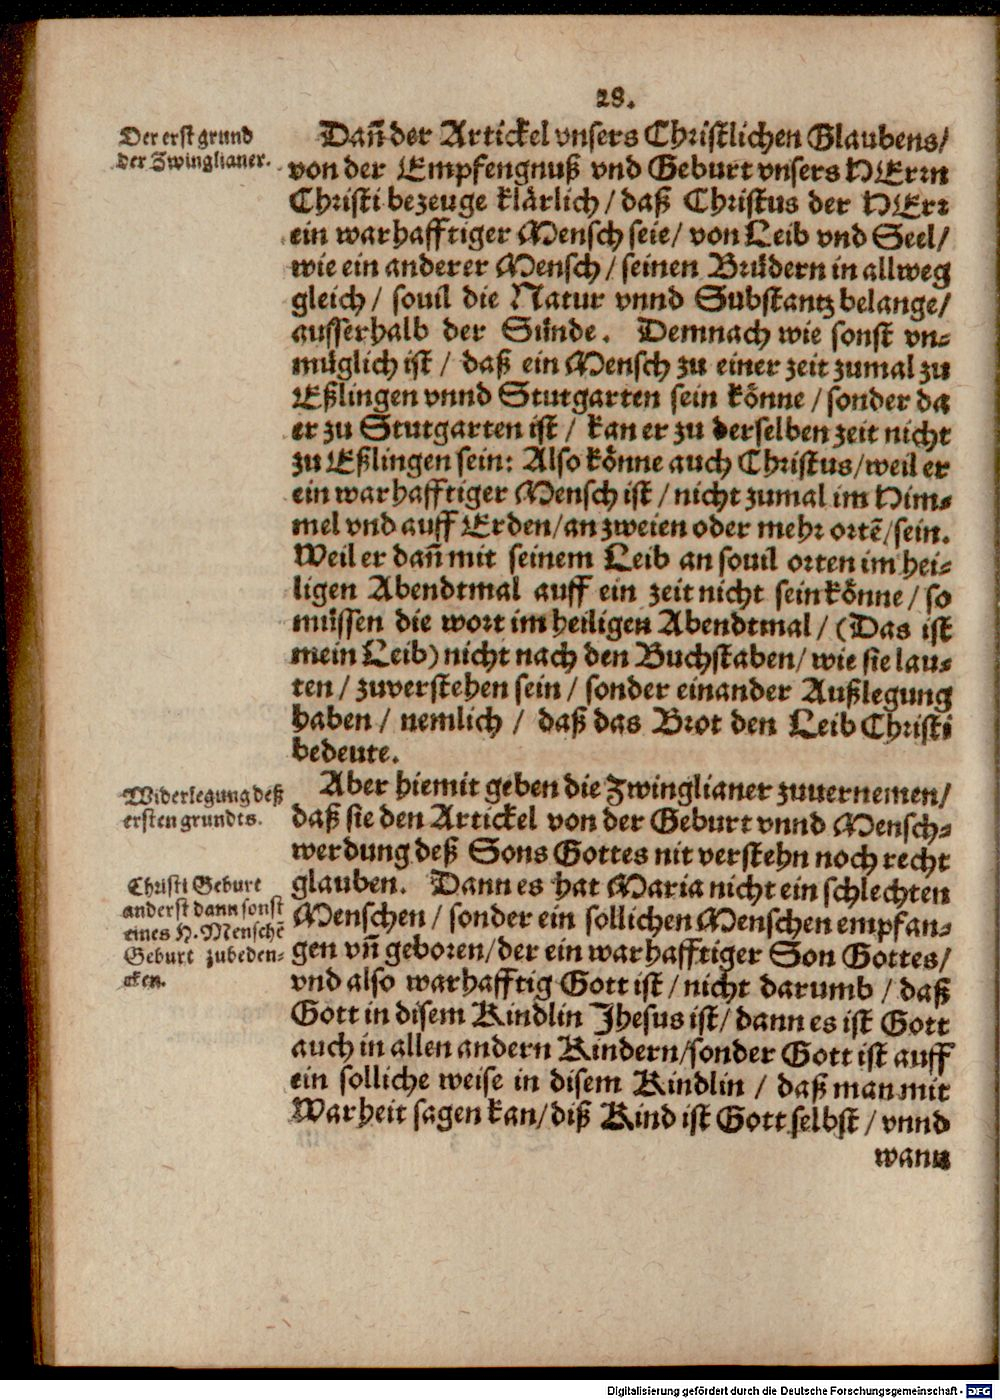 28.
Der erst grund
der Zwinglianer.
Dañ der Artickel vnsers Christlichen Glaubens/
von der Empfengnuß vnd Geburt vnsers HErrn
Christi bezeuge klärlich / daß Christus der HErr
ein warhafftiger Mensch seie / von Leib vnd Seel /
wie ein anderer Mensch / seinen Brüdern in allweg
gleich / souil die Natur vnnd Substantz belange /
ausserhalb der Sünde. Demnach wie sonst vn-
müglich ist / daß ein Mensch zu einer zeit zumal zu
Eßlingen vnnd Stutgarten sein könne / sonder da
er zu Stutgarten ist / kan er zu derselben zeit nicht
zu Eßlingen sein: Also könne auch Christus / weil er
ein warhafftiger Mensch ist / nicht zumal im Him-
mel vnd auff Erden / an zweien oder mehr ortẽ / sein.
Weil er dañ mit seinem Leib an souil orten im hei-
ligen Abendtmal auff ein zeit nicht sein könne / so
müssen die wort im heiligen Abendtmal / (Das ist
mein Leib) nicht nach den Buchstaben / wie sie lau-
ten / zuverstehen sein / sonder ein ander Außlegung
haben / nemlich / daß das Brot den Leib Christi
bedeute.
Widerlegung deß
ersten grundts.
Aber hiemit geben die Zwinglianer zuuernemen /
daß sie den Artickel von der Geburt vnnd Mensch-
werdung deß Sons Gottes nit verstehn noch recht
Christi Geburt
anderst dann sonst
eines H. Menschẽ
Geburt zubeden-
cken.
glauben. Dann es hat Maria nicht ein schlechten
Menschen / sonder ein sollichen Menschen empfan-
gen vñ geboren / der ein warhafftiger Son Gottes /
vnd also warhafftig Gott ist / nicht darumb / daß
Gott in disem Kindlin Jhesus ist / dann es ist Gott
auch in allen andern Kindern / sonder Gott ist auff
ein solliche weise in disem Kindlin / daß man mit
Warheit sagen kan / diß Kind ist Gott selbst / vnnd
wann
Digitalisierung gefördert durch die Deutsche Forschungsgemeinschaft - DFG